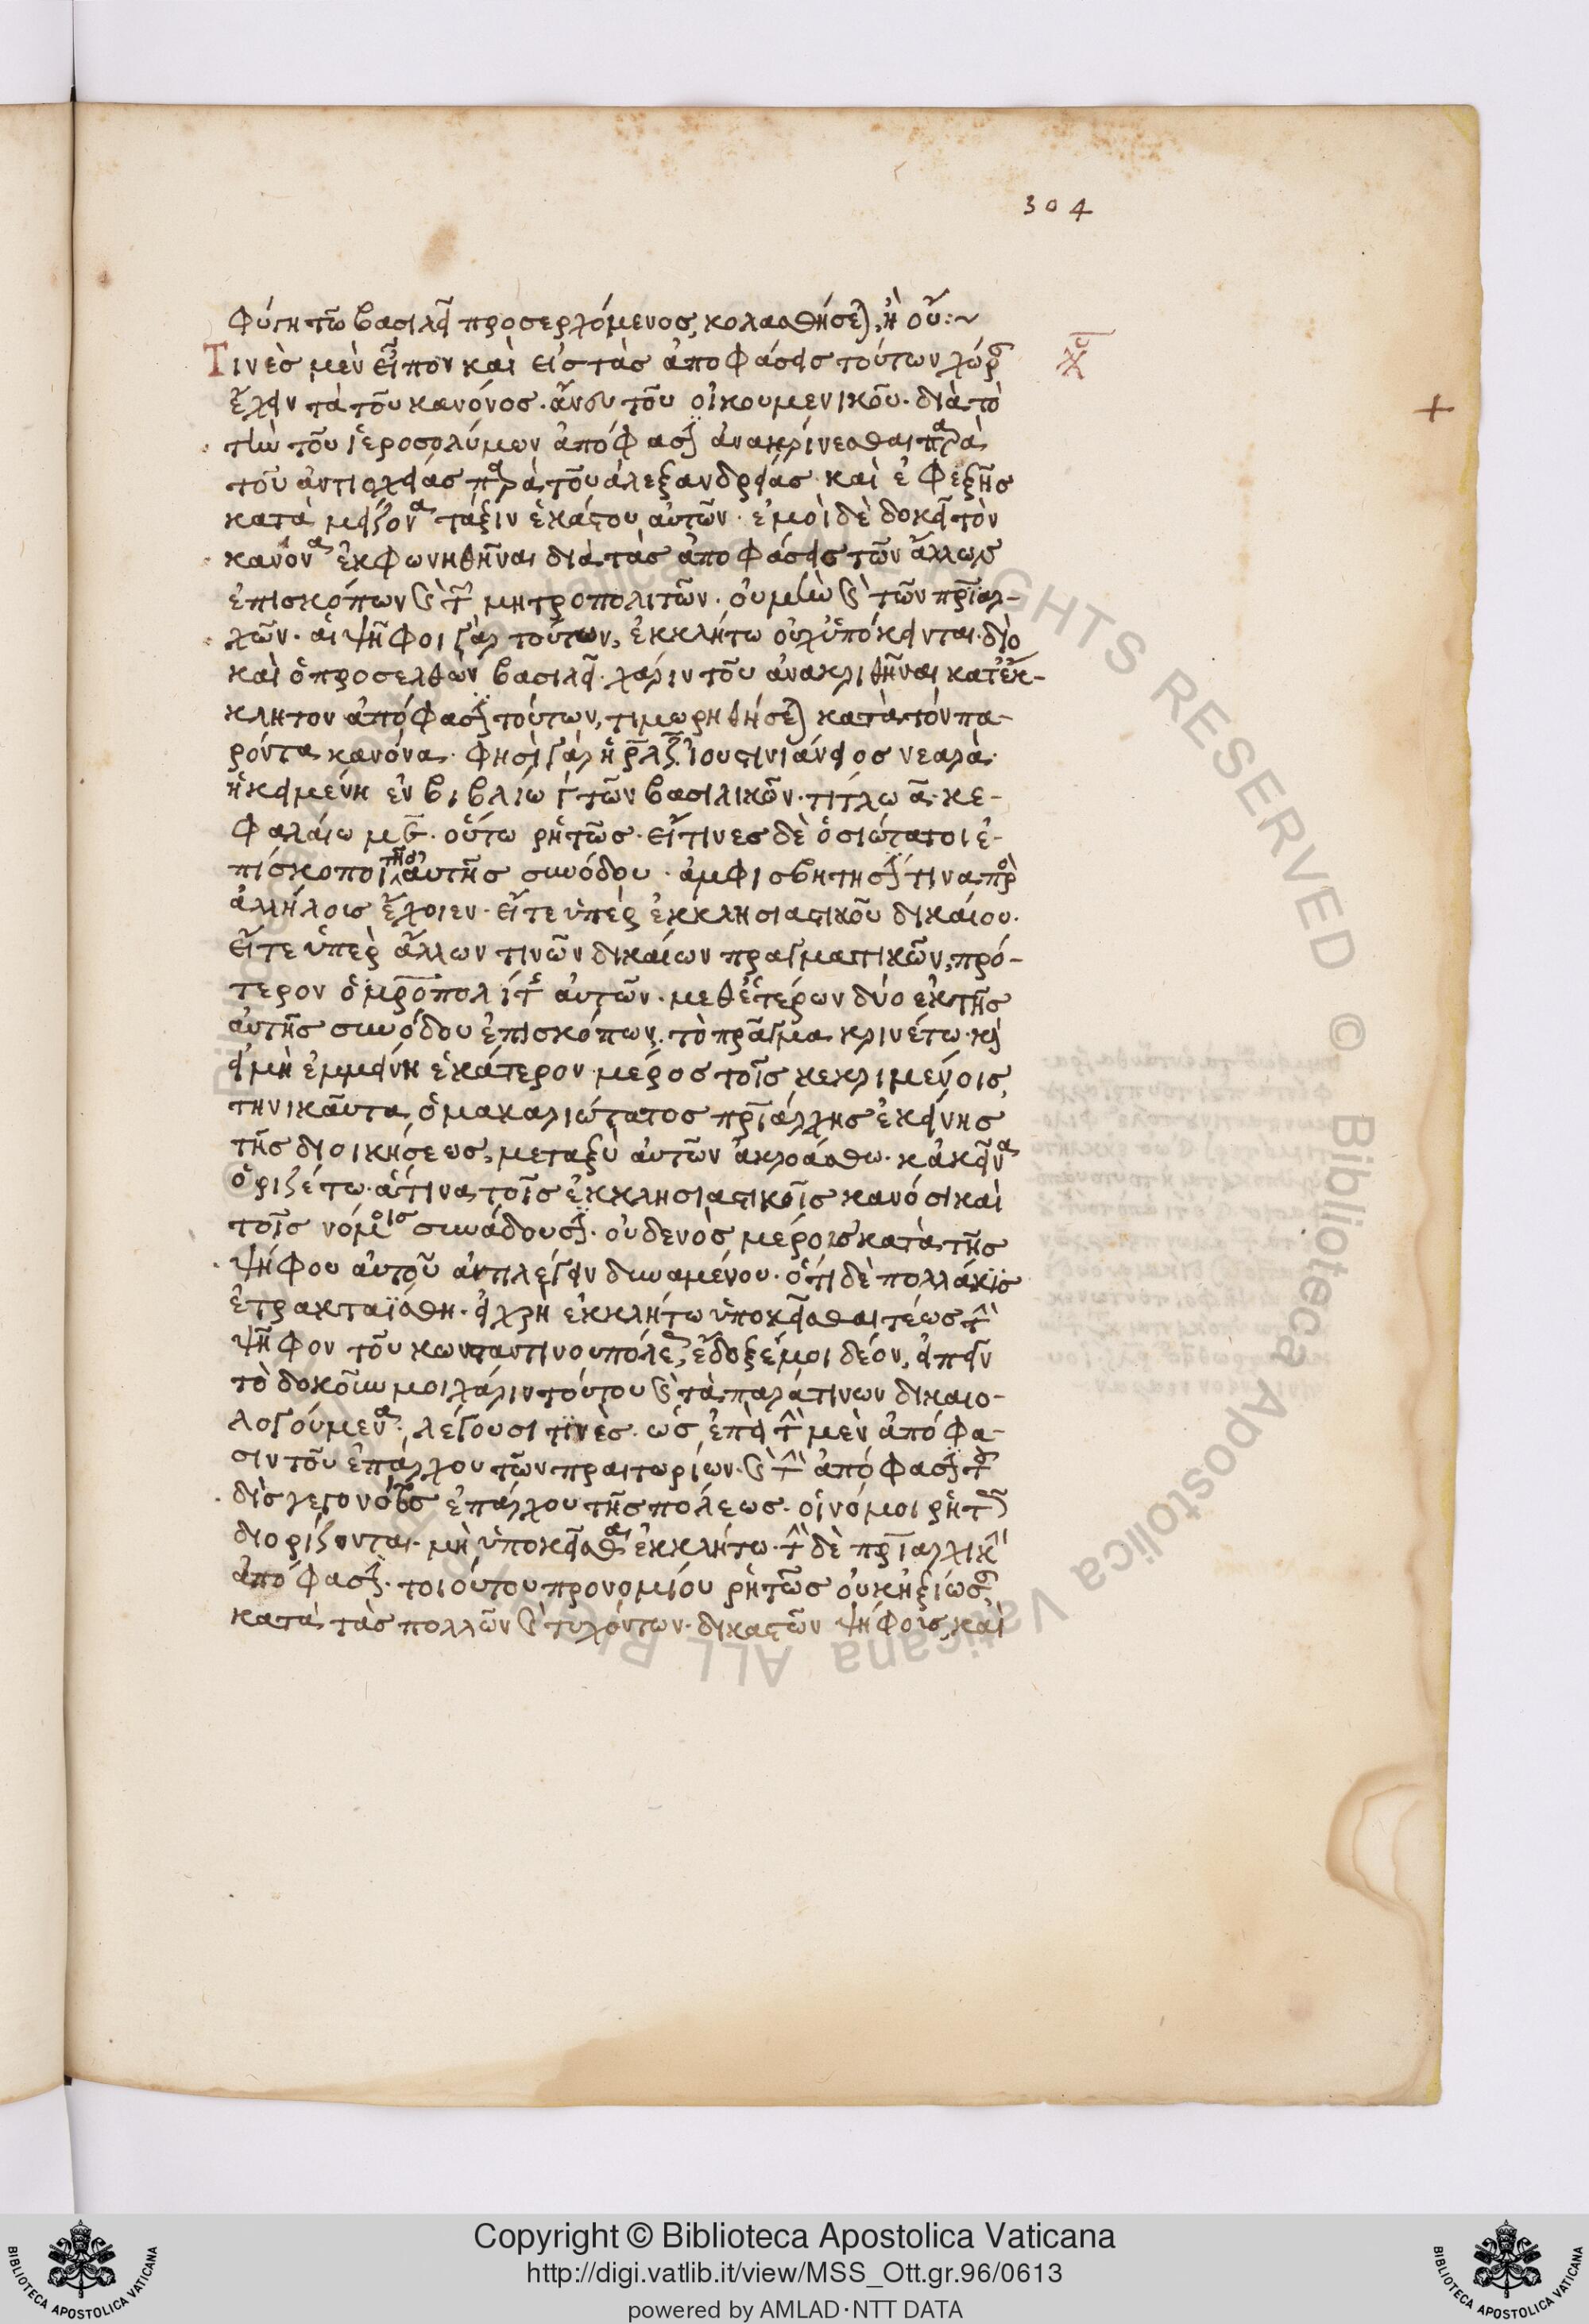 304
φύγη τῶ βασιλεῖ προσερχόμενος, κολασθήσεται, ἢ οὔ:~
Τινὲς μὲν εἶπον καὶ εἰς τὰς ἀποφάσεις τούτων χώραν
ἔχειν τὰ τοῦ κανόνος. ἄνευ τοῦ οἰκουμενικοῦ. διὰ τὸ
τὴν τοῦ ἱεροσολύμων ἀπόφασιν ἀνακρίνεσθαι παρὰ
τοῦ ἀντιοχείας παρὰ τοῦ ἀλεξανδρείας. καὶ ἐφεξῆς
κατὰ μείζονα τάξιν ἑκάστου αὐτῶν. ἐμοὶ δὲ δοκεῖ τὸν
κανόνα ἐκφωνηθῆναι διὰ τὰς ἀποφάσεις τῶν ἄλλων
ἐπισκόπων καὶ τῶν μητροπολιτῶν. οὐ μὴν καὶ τῶν πριαρ-
χῶν. αἱ ψῆφοι γὰρ τούτων, ἐκκλήτω οὐχ ὑπόκεινται. διὸ
καὶ ὁ προσελθὼν βασιλεῖ. χάριν τοῦ ἀνακριθῆναι κατ' ἔκ-
κλητον ἀπόφασιν τούτων, τιμωρηθήσεται κατὰ τὸν πα-
ρόντα κανόνα. φησὶ γὰρ ἡ ρλζ ἰουστινιάνειος νεαρὰ.
ἡ κειμένη ἐν βιβλίω γ τῶν βασιλικῶν. τίτλω α. κε-
φαλαίω μϛ. οὕτω ρητῶς. εἴ τινες δὲ ὁσιώτατοι ἐ-
πίσκοποι τῆς αὐτῆς συνόδου. ἀμφισβήτησιν τινα πρὸς
ἀλλήλοις ἔχοιεν. εἴτε ὑπὲρ ἐκκλησιαστικοῦ δικαίου.
εἴτε ὑπὲρ ἄλλων τινῶν δικαίων πραγματικῶν, πρό-
τερον ὁ μροπολίτης αὐτῶν. μεθ' ἑτέρων δύο ἐκ τῆς
αὐτῆς συνόδου ἐπισκόπων. τὸ πρᾶγμα κρινέτω. καὶ
εἰ μὴ ἐμμείνη ἑκάτερον μέρος τοῖς κεκριμένοις,
τηνικαῦτα, ὁ μακαριώτατος πριάρχης ἐκείνης
τῆς διοικήσεως, μεταξὺ αὐτῶν ἀκροάσθω. κἀκεῖνα
ὁριζέτω. ἅτινα τοῖς ἐκκλησιαστικοῖς κανόσι καὶ
τοῖς νόμοις συνάδουσιν. οὐδενὸς μέρους κατὰ τῆς
ψήφου αὐτοῦ ἀντιλέγειν δυναμένου. ὅτι δὲ πολλάκις
ἐτρακταΐσθη. εἰ χρὴ ἐκκλήτω ὑποκεῖσθαι τέως τὴν
ψῆφον τοῦ κωνσταντινουπόλεως, ἔδοξέ μοι δέον, εἰπεῖν
τὸ δοκοῦν μοι χάριν τούτου καὶ τὰ παρά τινων δικαιο-
λογούμενα. λέγουσι τινὲς. ὡς ἐπεὶ τὴν μὲν ἀπόφα-
σιν τοῦ ἐπάρχου τῶν πραιτωρίων. καὶ τὴν ἀπόφασιν τοῦ
δὶς γεγονότος ἐπάρχου τῆς πόλεως. οἱ νόμοι ρητῶς
διορίζονται. μὴ ὑποκεῖσθαι ἐκκλήτω. τὴν δὲ πριαρχικὴν
ἀπόφασιν. τοιούτου προνομίου ρητῶς οὐκ ἠξίωσαν,
κατὰ τὰς πολλῶν καὶ τυχόντων. δικαστῶν ψήφους, καὶ
© Biblioteca Apostolica Vaticana ALL RIGHTS RESERVED
Copyright © Biblioteca Apostolica Vaticana
http://digi.vatlib.it/view/MSS_Ott.gr.96/0613
powered by AMLAD·NTT DATA
BIBLIOTECA APOSTOLICA VATICANA
BIBLIOTECA APOSTOLICA VATICANA